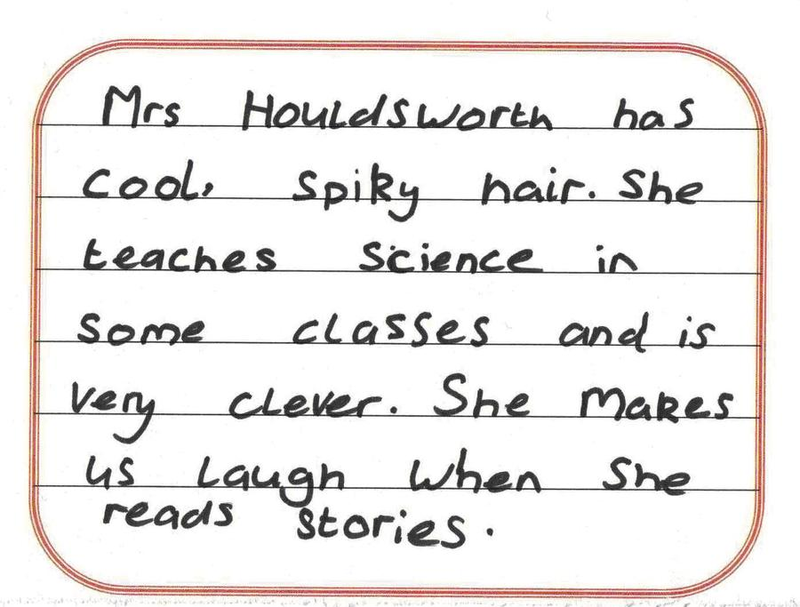 Mrs Houldsworth has
cool, spiky hair. She
teaches science in
some classes and is
very clever. She makes
us laugh when she
reads stories.